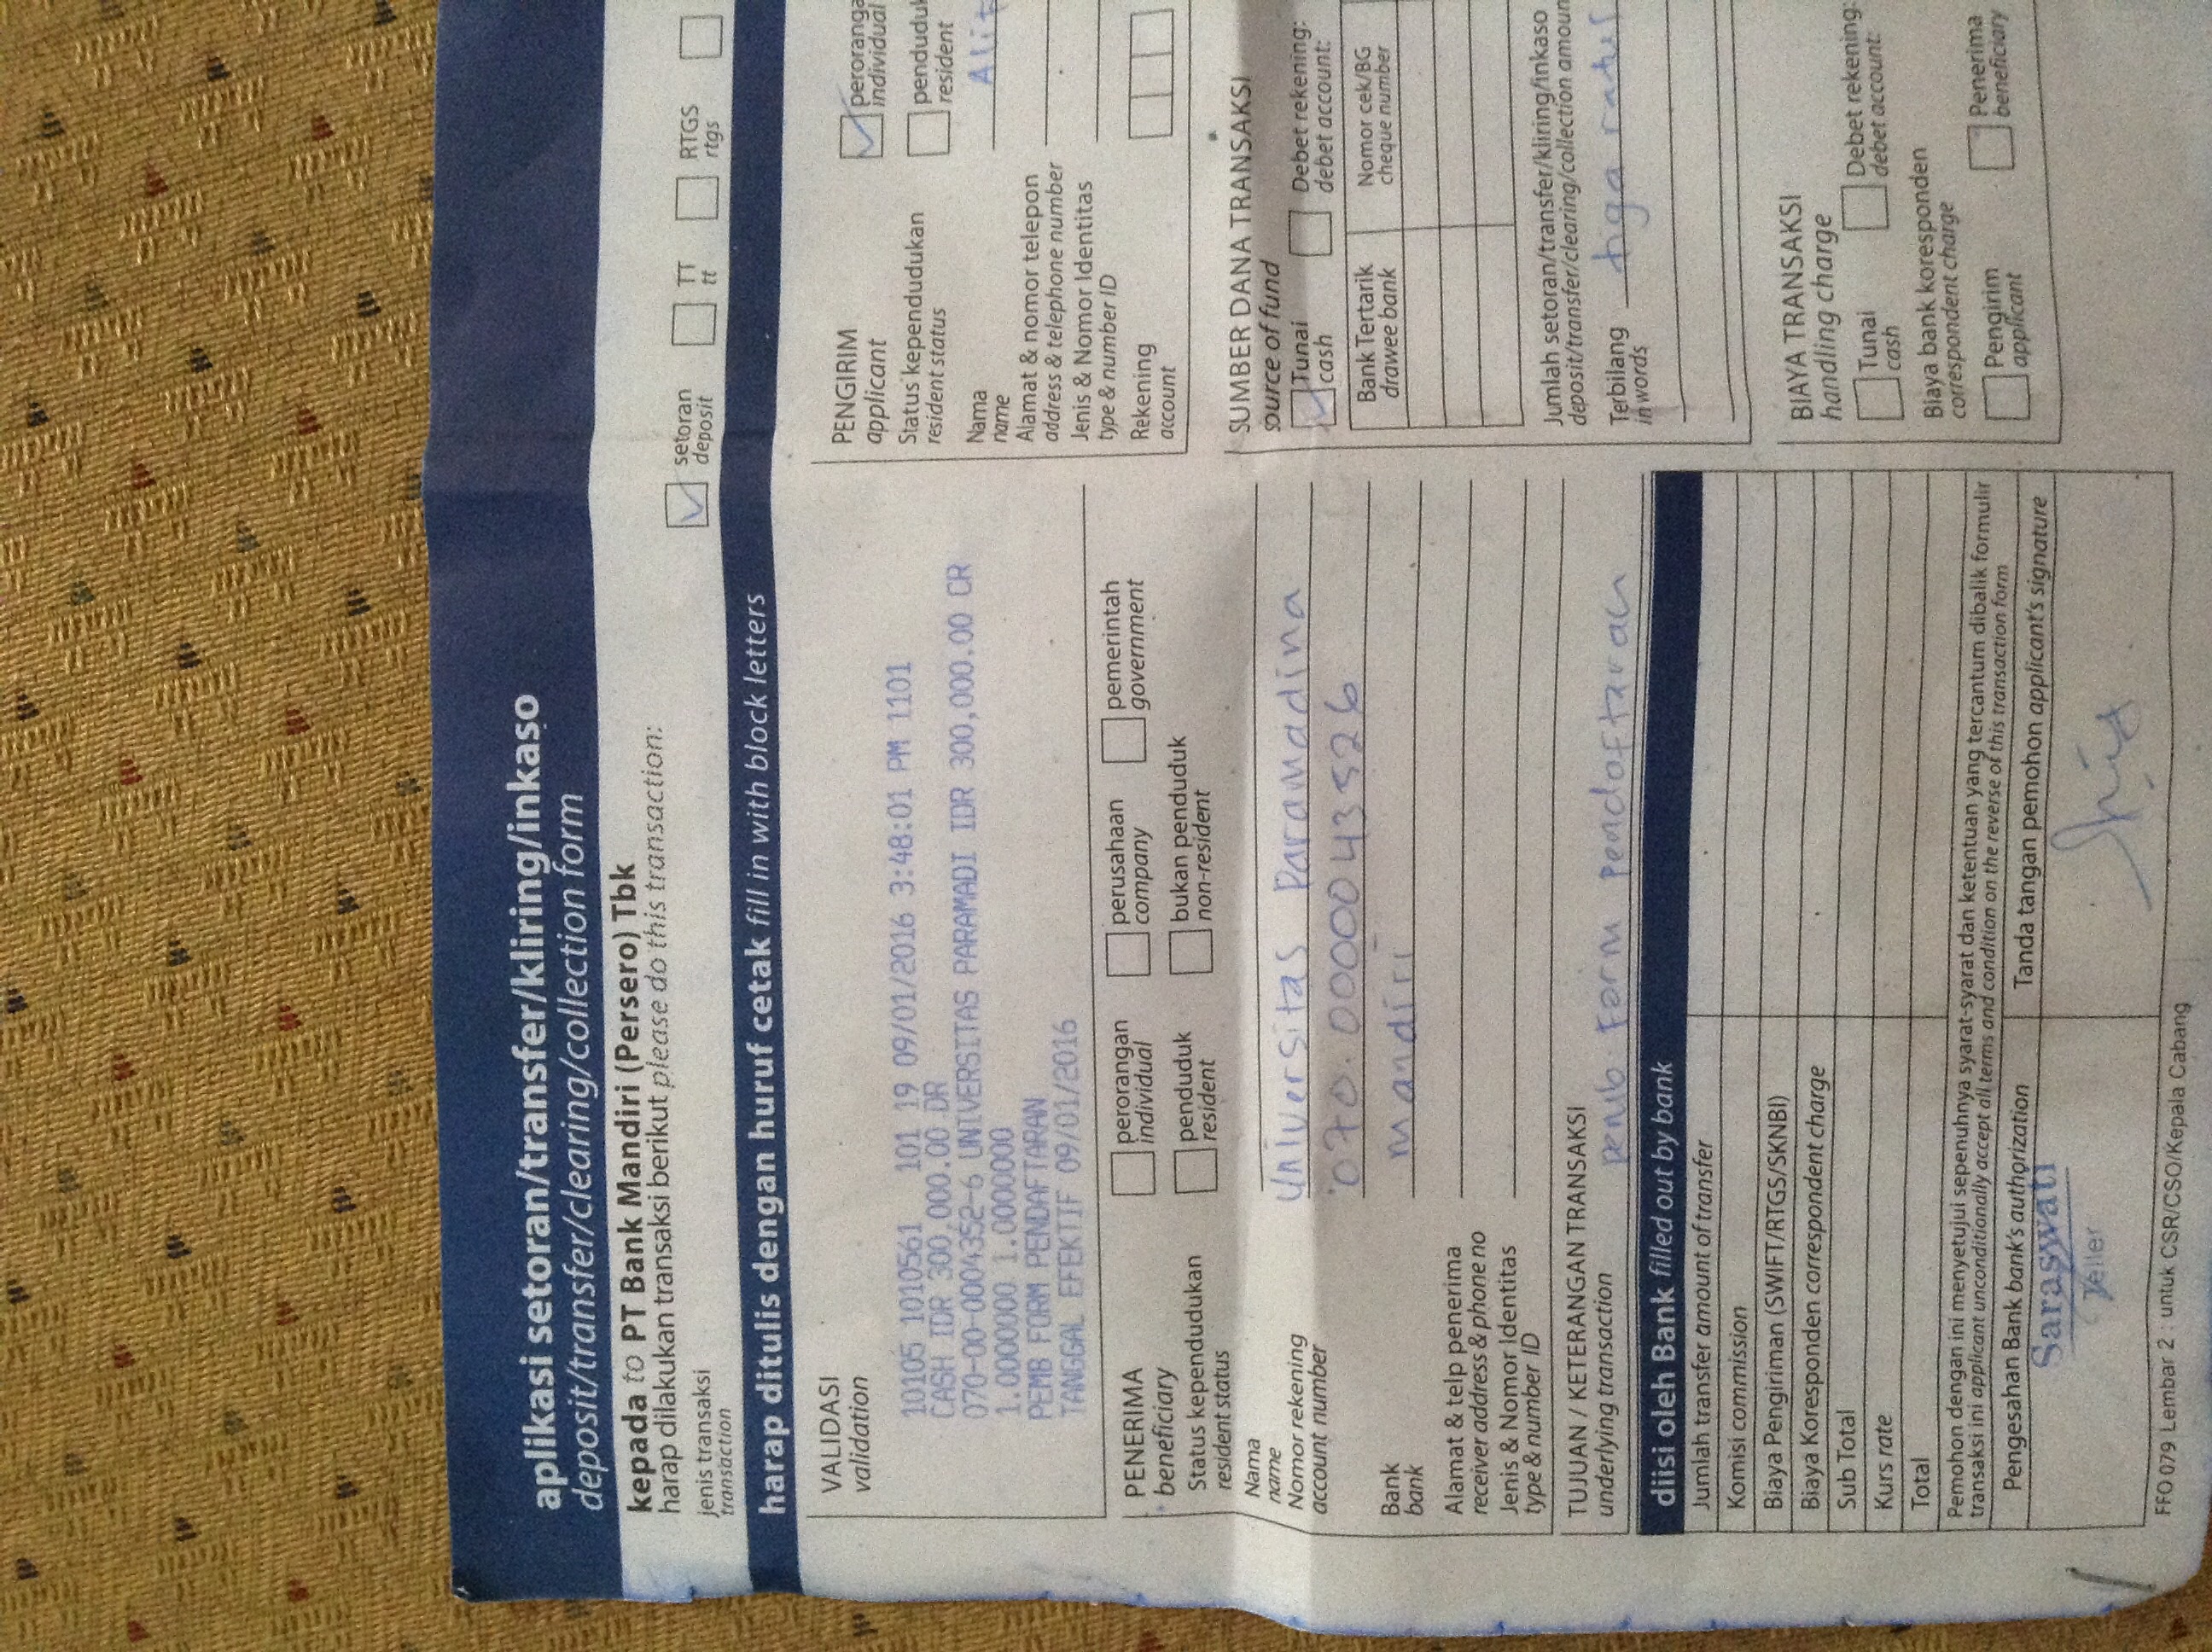 aplikasi setoran/transfer/kliring/inkaso
deposit/transfer/clearing/collection form
kepada to PT Bank Mandiri (Persero) Tbk
harap dilakukan transaksi berikut please do this transaction:
jenis transaksi
transaction
setoran
deposit
TT
tt
RTGS
rtgs
harap ditulis dengan huruf cetak fill in with block letters
VALIDASI
validation
10105 1010561 101 19 09/01/2016 3:48:01 PM 1101
CASH IDR 300,000.00 DR
070-00-0004352-6 UNIVERSITAS PARAMADI IDR 300,000.00 CR
1.0000000 1.0000000
PEMB FORM PENDAFTARAN
TANGGAL EFEKTIF 09/01/2016
PENERIMA
beneficiary
perorangan
individual
perusahaan
company
pemerintah
government
Status kependudukan
resident status
penduduk
resident
bukan penduduk
non-resident
Nama
name
Universitas Paramadina
Nomor rekening
account number
070.0000043526
Bank
bank
Mandiri
Alamat & telp penerima
receiver address & phone no
Jenis & Nomor Identitas
type & number ID
TUJUAN / KETERANGAN TRANSAKSI
underlying transaction
pemb. Form pendaftaran
diisi oleh Bank filled out by bank
Jumlah transfer amount of transfer
Komisi commission
Biaya Pengiriman (SWIFT/RTGS/SKNBI)
Biaya Koresponden correspondent charge
Sub Total
Kurs rate
Total
Pemohon dengan ini menyetujui sepenuhnya syarat-syarat dan ketentuan yang tercantum dibalik formulir
transaksi ini applicant unconditionally accept all terms and condition on the reverse of this transaction form
Pengesahan Bank bank's authorization
Tanda tangan pemohon applicant's signature
Saraswati
Teller
FFO 079 Lembar 2 : untuk CSR/CSO/Kepala Cabang
PENGIRIM
applicant
peroranga
individual
Status kependudukan
resident status
penduduk
resident
Nama
name
Alamat & nomor telepon
address & telephone number
Jenis & Nomor Identitas
type & number ID
Rekening
account
SUMBER DANA TRANSAKSI
source of fund
Tunai
cash
Debet rekening:
debet account:
Bank Tertarik
drawee bank
Nomor cek/BG
cheque number
Jumlah setoran/transfer/kliring/inkaso
deposit/transfer/clearing/collection amoun
Terbilang
in words
tiga ratus
BIAYA TRANSAKSI
handling charge
Tunai
cash
Debet rekening:
debet account:
Biaya bank koresponden
correspondent charge
Pengirim
applicant
Penerima
beneficiary